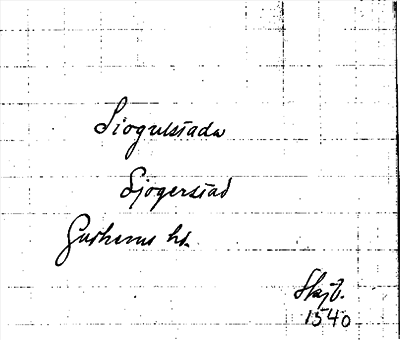 Siogulstada
Sjögerstad
Gudhems hd.
Skjb.
1540